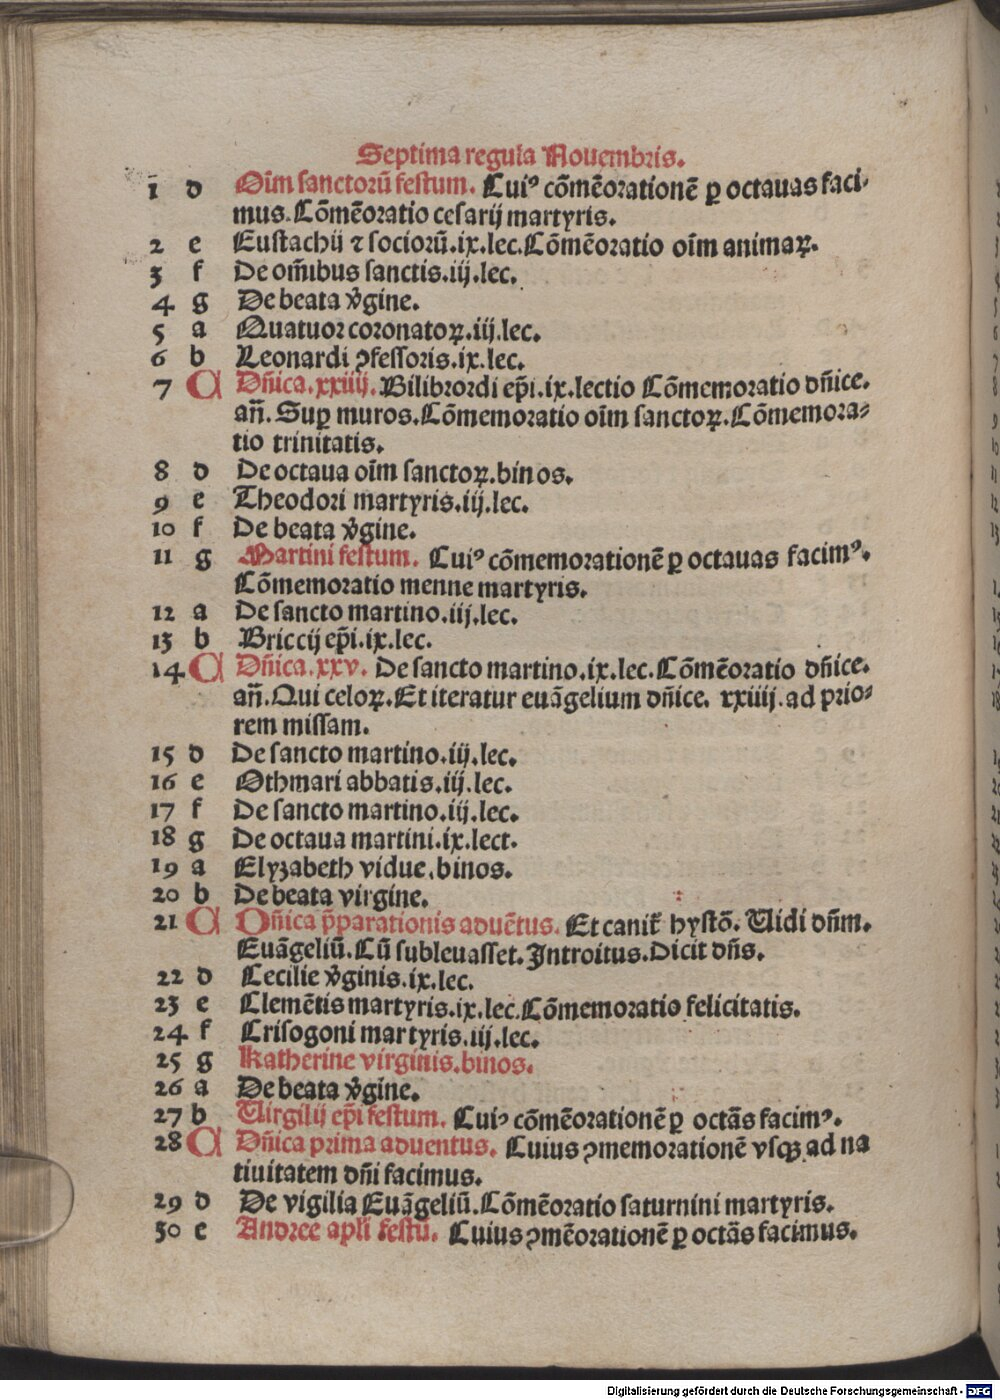 Septima regula Nouembris.
1 d Oīm sanctorū festum. Cuiꝰ cōmēorationē ꝑ octauas faci-
mus. Cōmēoratio cesarij martyris.
2 e Eustachii ⁊ sociorū.ix.lec.Cōmēoratio oīm animaꝝ.
3 f De om̄ibus sanctis.iij.lec.
4 g De beata v̄gine.
5 a Quatuor coronatoꝝ.iij.lec.
6 b Leonardi ꝯfessoris.ix.lec.
7 A Dn̄ica.xxiiij. Bilibrordi ep̄i.ix.lectio Cōmemoratio dn̄ice.
an̄. Suꝑ muros.Cōmemoratio oīm sanctoꝝ.Cōmemora-
tio trinitatis.
8 d De octaua oīm sanctoꝝ.binos.
9 e Theodori martyris.iij.lec.
10 f De beata v̄gine.
11 g Martini festum. Cuiꝰ cōmemorationē ꝑ octauas facimꝰ.
Cōmemoratio menne martyris.
12 a De sancto martino.iij.lec.
13 b Briccij ep̄i.ix.lec.
14 A Dn̄ica.xxv. De sancto martino.ix.lec.Cōmēoratio dn̄ice.
an̄.Qui celoꝝ.Et iteratur euāgelium dn̄ice. xxiiij.ad prio-
rem missam.
15 d De sancto martino.iij.lec.
16 e Othmari abbatis.iij.lec.
17 f De sancto martino.iij.lec.
18 g De octaua martini.ix.lect.
19 a Elyzabeth vidue.binos.
20 b De beata virgine.
21 A Dn̄ica p̄parationis aduētus. Et canit᷑ hystō. Uidi dn̄m.
Euāgeliū.Cū subleuasset.Introitus.Dicit dn̄s.
22 d Cecilie v̄ginis.ix.lec.
23 e Clemētis martyris.ix.lec.Cōmemoratio felicitatis.
24 f Crisogoni martyris.iij.lec.
25 g Katherine virginis.binos.
26 a De beata v̄gine.
27 b Uirgilij ep̄i festum. Cuiꝰ cōmēorationē ꝑ octās facimꝰ.
28 A Dn̄ica prima aduentus. Cuius ꝯmemorationē vsqꝫ ad na
tiuitatem dn̄i facimus.
29 d De vigilia Euāgeliū.Cōmēoratio saturnini martyris.
30 e Andree apl̄i festū. Cuius ꝯmēorationē ꝑ octās facimus.
Digitalisierung gefördert durch die Deutsche Forschungsgemeinschaft - DFG